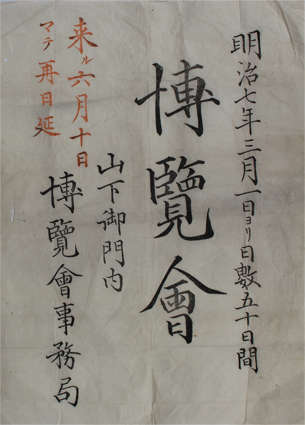 明治七年三月一日ヨリ日數五十日間
博覽會
山下御門内
博覽會事務局
来ル六月十日
マテ再日延